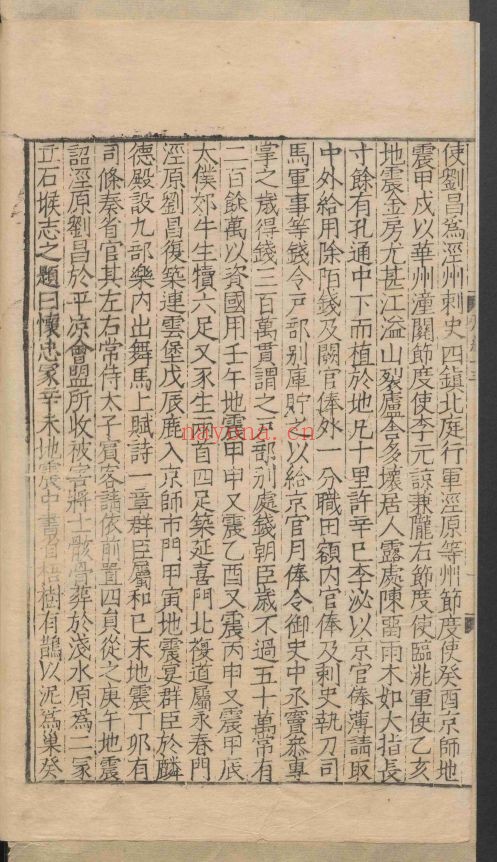 使劉昌爲涇州刺史四鎮北庭行軍涇原等州節度使癸酉京師地
震甲戌以華州潼關節度使李元諒兼隴右節度使臨洮軍使乙亥
地震金房尤甚江溢山裂廬舍多壞居人露處陳畱雨木如大指長
寸餘有孔通中下而植於地凡十里許辛巳李泌以京官俸薄請取
中外給用除陌錢及闕官俸外一分職田額內官俸及刺史執刀司
馬軍事等錢令戶部別庫貯之以給京官月俸令御史中丞竇叅專
掌之歲得錢三百萬貫謂之戶部別處錢朝臣歲不過五十萬常有
二百餘萬以資國用壬午地震甲申又震乙酉又震丙申又震甲辰
太僕郊牛生犢六足又豕生兩首四足築延喜門北複道屬永春門
涇原劉昌復築連雲堡戊辰鹿入京師市門甲寅地震宴群臣於麟
德殿設九部樂內出舞馬上賦詩一章群臣屬和己未地震丁卯有
司條奏省官其左右常侍太子賓客請依前置四員從之庚午地震
詔涇原劉昌於平凉會盟所收被害將士骸骨葬於淺水原爲二冢
立石堠志之題曰懷忠冢辛未地震中書省梧樹有鵲以泥爲巢癸
nayona.cn